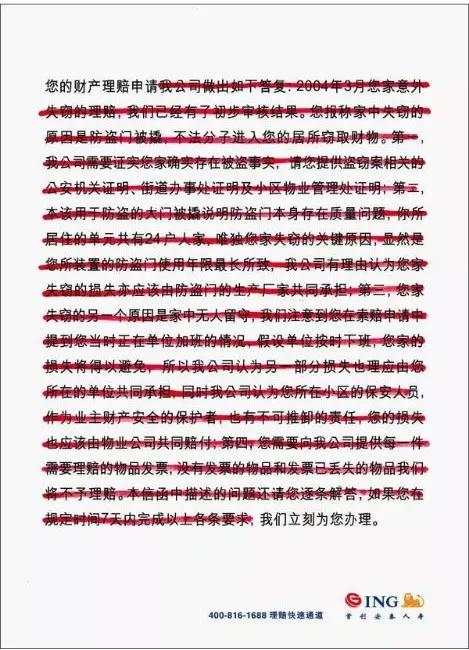 您的财产理赔申请我公司做出如下答复:2004年3月您家意外
失窃的理赔,我们已经有了初步审核结果。您报称家中失窃的
原因是防盗门被撬,不法分子进入您的居所窃取财物。第一,
我公司需要证实您家确实存在被盗事实,请您提供盗窃案相关的
公安机关证明、街道办事处证明及小区物业管理处证明;第二,
本该用于防盗的大门被撬说明防盗门本身存在质量问题,你所
居住的单元共有24户人家,唯独您家失窃的关键原因,显然是
您所装置的防盗门使用年限最长所致,我公司有理由认为您家
失窃的损失亦应该由防盗门的生产厂家共同承担;第三,您家
失窃的另一个原因是家中无人留守,我们注意到您在索赔申请中
提到您当时正在单位加班的情况,假设单位按时下班,您家的
损失将得以避免,所以我公司认为另一部分损失也理应由您
所在的单位共同承担,同时我公司认为您所在小区的保安人员,
作为业主财产安全的保护者,也有不可推卸的责任,您的损失
也应该由物业公司共同赔付;第四,您需要向我公司提供每一件
需要理赔的物品发票,没有发票的物品和发票已丢失的物品我们
将不予理赔。本信函中描述的问题还请您逐条解答,如果您在
规定时间7天内完成以上各条要求,我们立刻为您办理。
400-816-1688 理赔快速通道
ING
首创安泰人寿